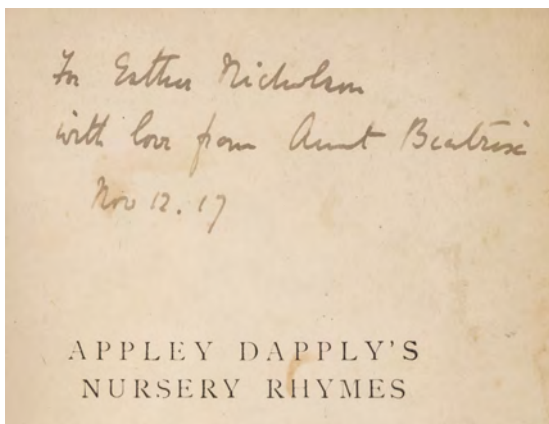 For Esther Nicholson
with love from Aunt Beatrix
Nov 12. 17
APPLEY DAPPLY'S
NURSERY RHYMES